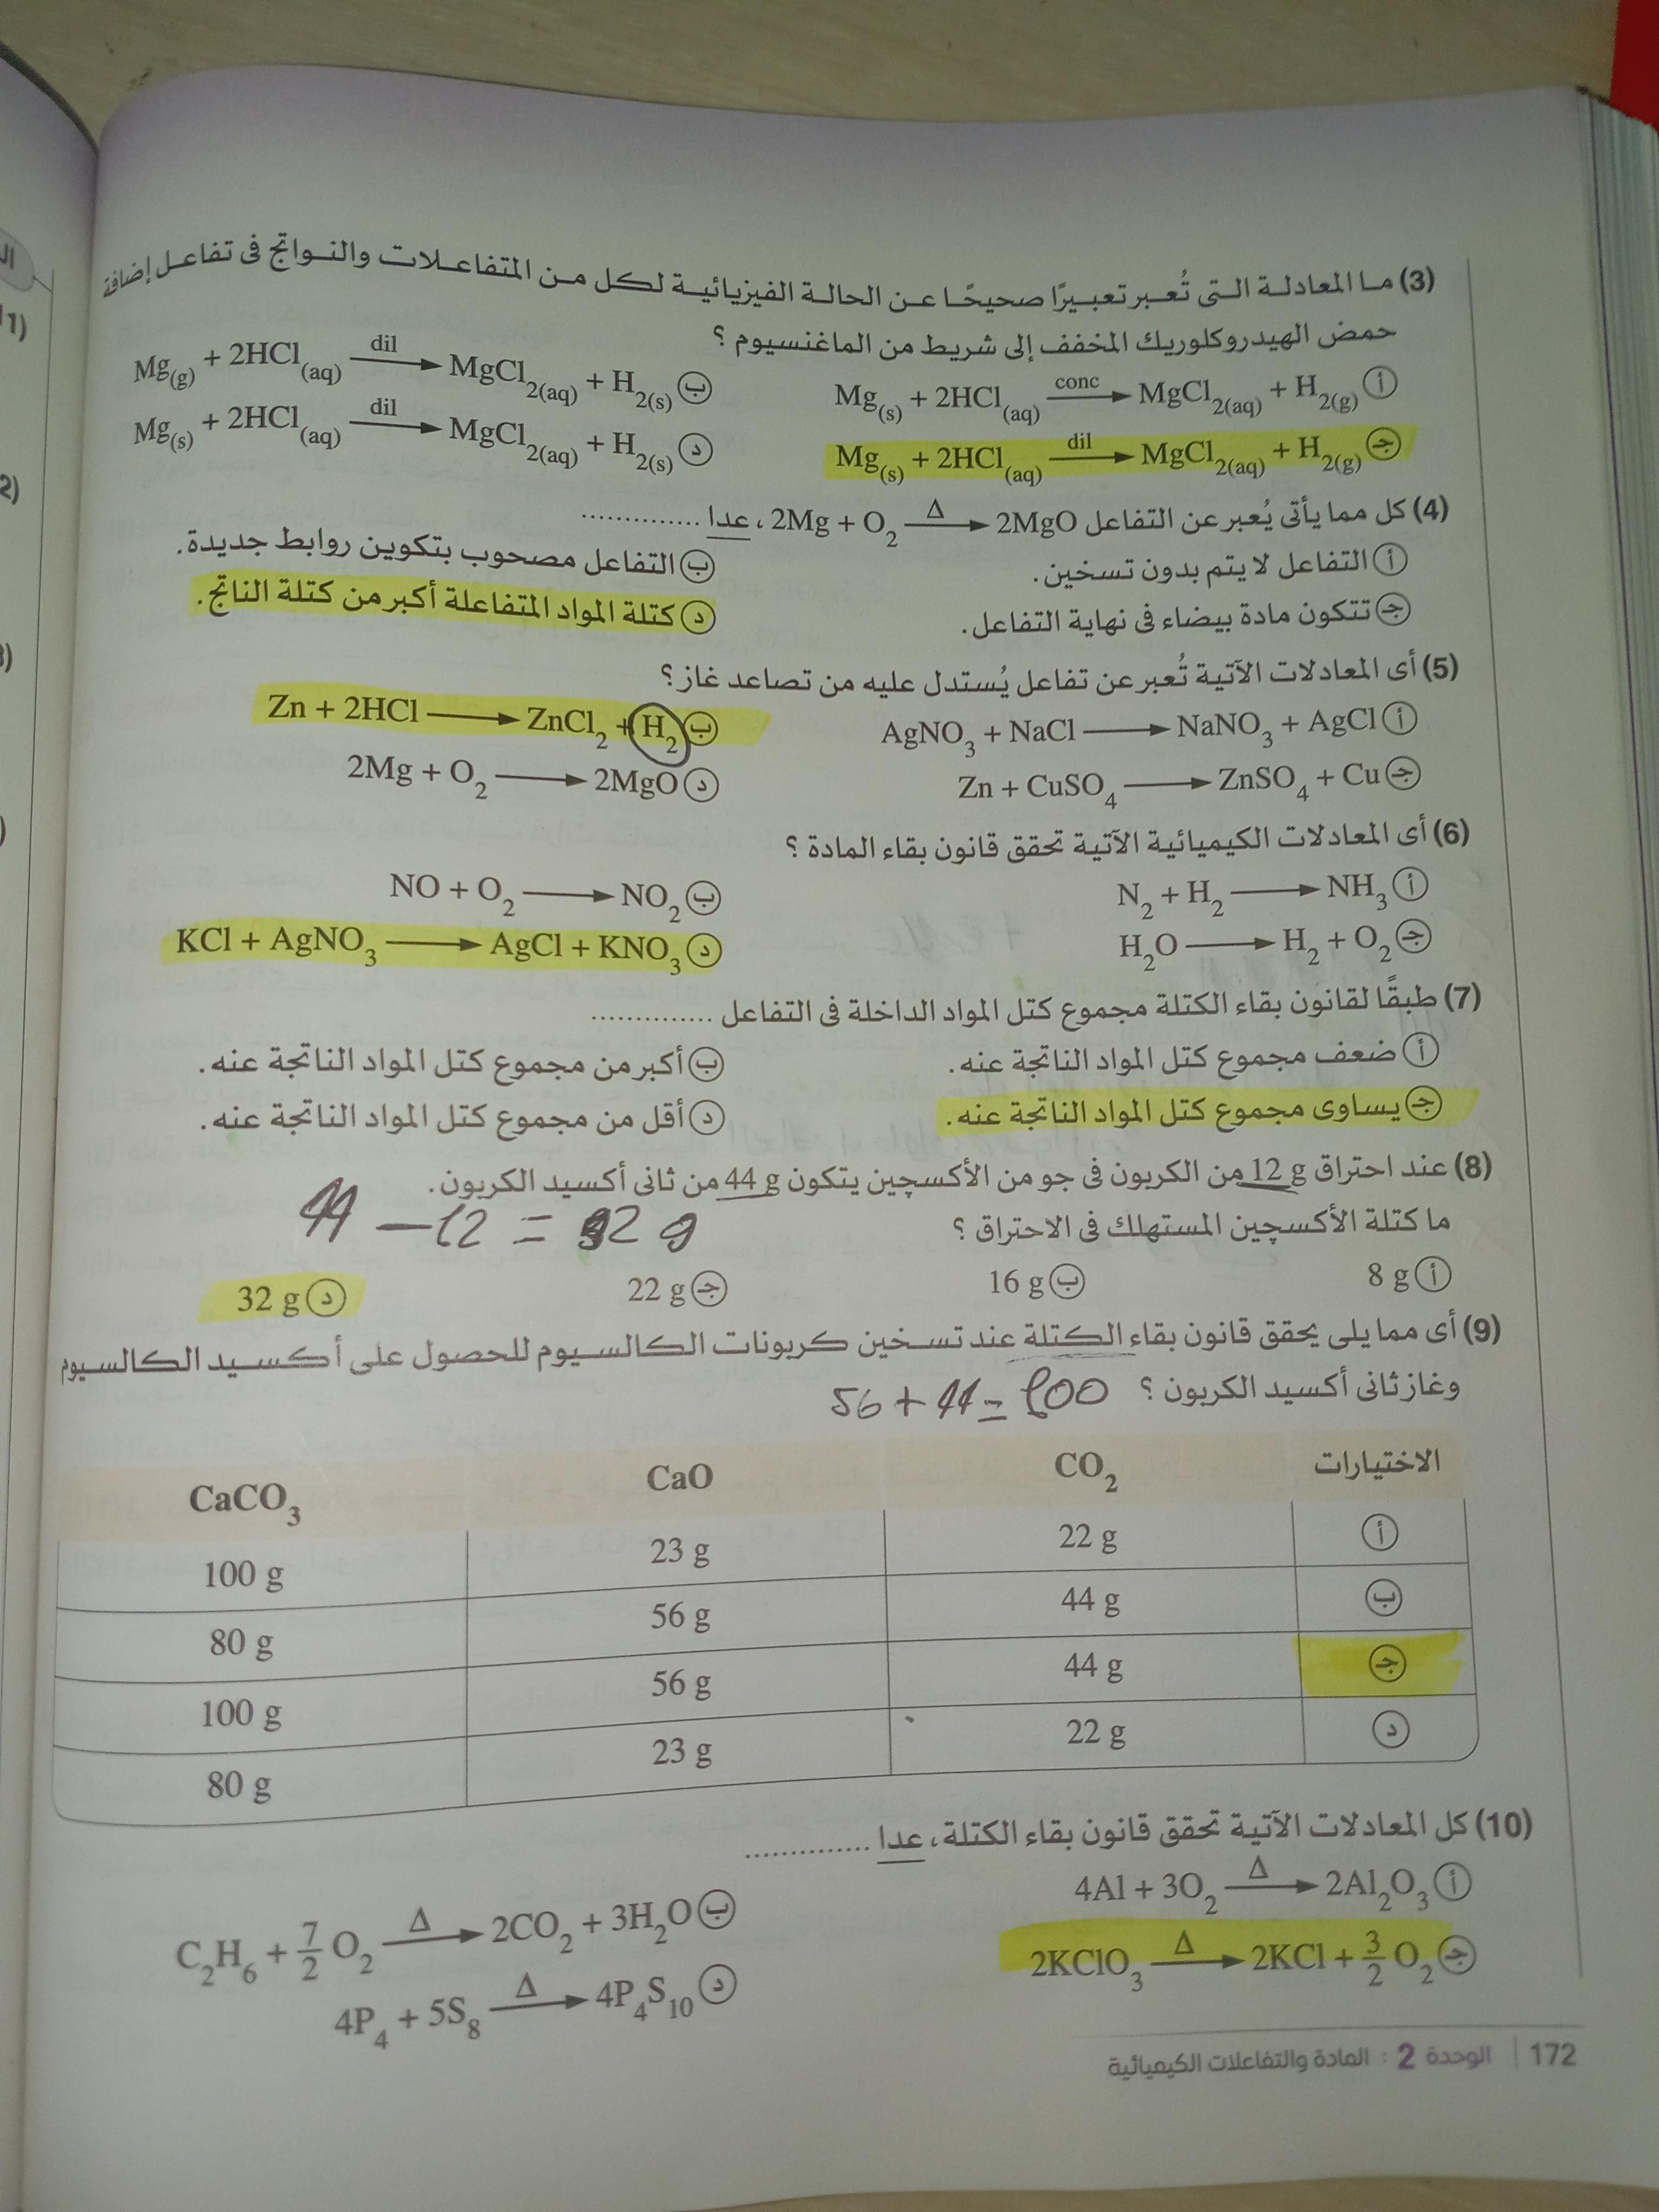 (3) ما المعادلة التى تُعبر تعبيرًا صحيحًا عن الحالة الفيزيائية لكل من المتفاعلات والنواتج فى تفاعل إضافة
حمض الهيدروكلوريك المخفف إلى شريط من الماغنسيوم ؟
أ Mg(s) + 2HCl(aq) conc⟶ MgCl2(aq) + H2(g)
ب Mg(g) + 2HCl(aq) dil⟶ MgCl2(aq) + H2(s)
جـ Mg(s) + 2HCl(aq) dil⟶ MgCl2(aq) + H2(g)
د Mg(s) + 2HCl(aq) dil⟶ MgCl2(aq) + H2(s)
(4) كل مما يأتى يُعبر عن التفاعل 2Mg + O2 Δ⟶ 2MgO ، عدا ..............
أ التفاعل لا يتم بدون تسخين.
ب التفاعل مصحوب بتكوين روابط جديدة.
جـ تتكون مادة بيضاء فى نهاية التفاعل.
د كتلة المواد المتفاعلة أكبر من كتلة الناتج.
(5) أى المعادلات الآتية تُعبر عن تفاعل يُستدل عليه من تصاعد غاز؟
أ AgNO3 + NaCl ⟶ NaNO3 + AgCl
ب Zn + 2HCl ⟶ ZnCl2 + H2
جـ Zn + CuSO4 ⟶ ZnSO4 + Cu
د 2Mg + O2 ⟶ 2MgO
(6) أى المعادلات الكيميائية الآتية تحقق قانون بقاء المادة ؟
أ N2 + H2 ⟶ NH3
ب NO + O2 ⟶ NO2
جـ H2O ⟶ H2 + O2
د KCl + AgNO3 ⟶ AgCl + KNO3
(7) طبقًا لقانون بقاء الكتلة مجموع كتل المواد الداخلة فى التفاعل ..............
أ ضعف مجموع كتل المواد الناتجة عنه.
ب أكبر من مجموع كتل المواد الناتجة عنه.
جـ يساوى مجموع كتل المواد الناتجة عنه.
د أقل من مجموع كتل المواد الناتجة عنه.
(8) عند احتراق 12 g من الكربون فى جو من الأكسچين يتكون 44 g من ثانى أكسيد الكربون.
ما كتلة الأكسچين المستهلك فى الاحتراق ؟
44 – 12 = 32 g
أ 8 g
ب 16 g
جـ 22 g
د 32 g
(9) أى مما يلى يحقق قانون بقاء الكتلة عند تسخين كربونات الكالسيوم للحصول على أكسيد الكالسيوم
وغاز ثانى أكسيد الكربون ؟
56 + 44 = 100
الاختيارات CO2 CaO CaCO3
أ 22 g 23 g 100 g
ب 44 g 56 g 80 g
جـ 44 g 56 g 100 g
د 22 g 23 g 80 g
(10) كل المعادلات الآتية تحقق قانون بقاء الكتلة، عدا ..............
أ 4Al + 3O2 Δ⟶ 2Al2O3
ب C2H6 + 7/2 O2 Δ⟶ 2CO2 + 3H2O
جـ 2KClO3 Δ⟶ 2KCl + 3/2 O2
د 4P4 + 5S8 Δ⟶ 4P4S10
172 | الوحدة 2 : المادة والتفاعلات الكيميائية
1)
2)